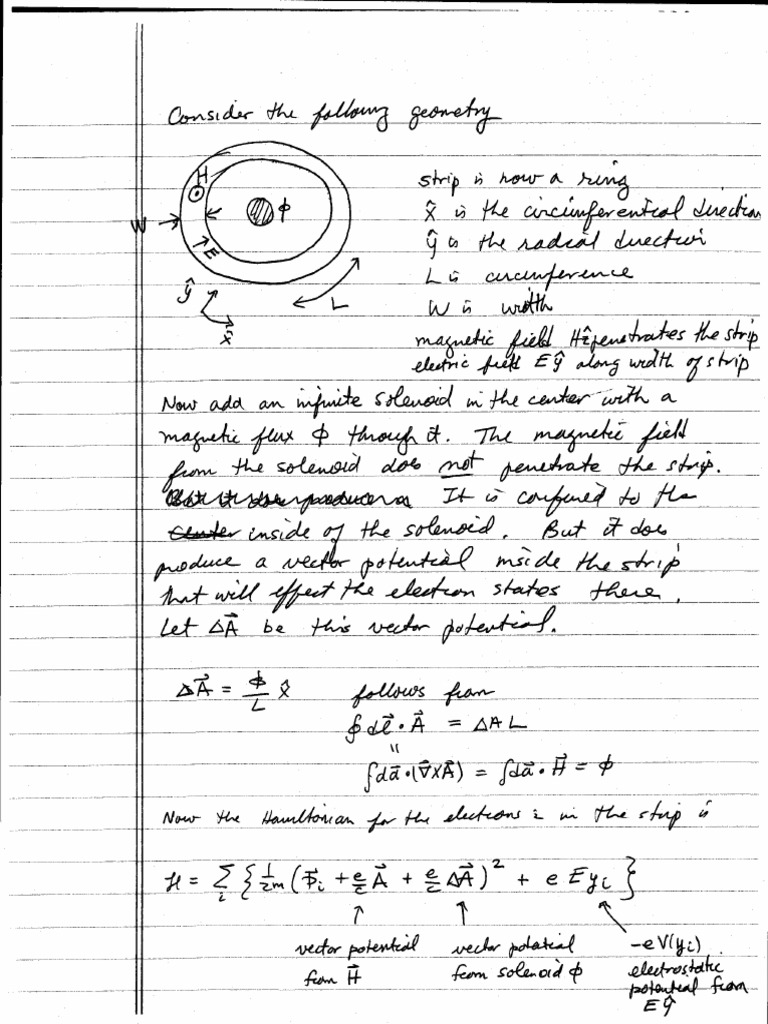 Consider the following geometry
H
W
Φ
E
ŷ
x̂
L
strip is now a ring
x̂ is the circumferential direction
ŷ is the radial direction
L is circumference
W is width
magnetic field Hẑ penetrates the strip
electric field Eŷ along width of strip
Now add an infinite solenoid in the center with a
magnetic flux Φ through it. The magnetic field
from the solenoid does not penetrate the strip.
It is confined to the
center inside of the solenoid. But it does
produce a vector potential inside the strip
that will effect the electron states there.
Let ΔA⃗ be this vector potential.
ΔA⃗ = Φ/L x̂ follows from
∮dl⃗·A⃗ = ΔA L
"
∫da⃗·(∇⃗×A⃗) = ∫da⃗·H⃗ = Φ
Now the Hamiltonian for the electrons i in the strip is
H = Σ_i { 1/2m (p⃗_i + e/c A⃗ + e/c ΔA⃗)² + e E y_i }
↑ ↑ ↖
vector potential vector potatial -eV(y_i)
from H⃗ from solenoid Φ electrostatic
potential from
Eŷ